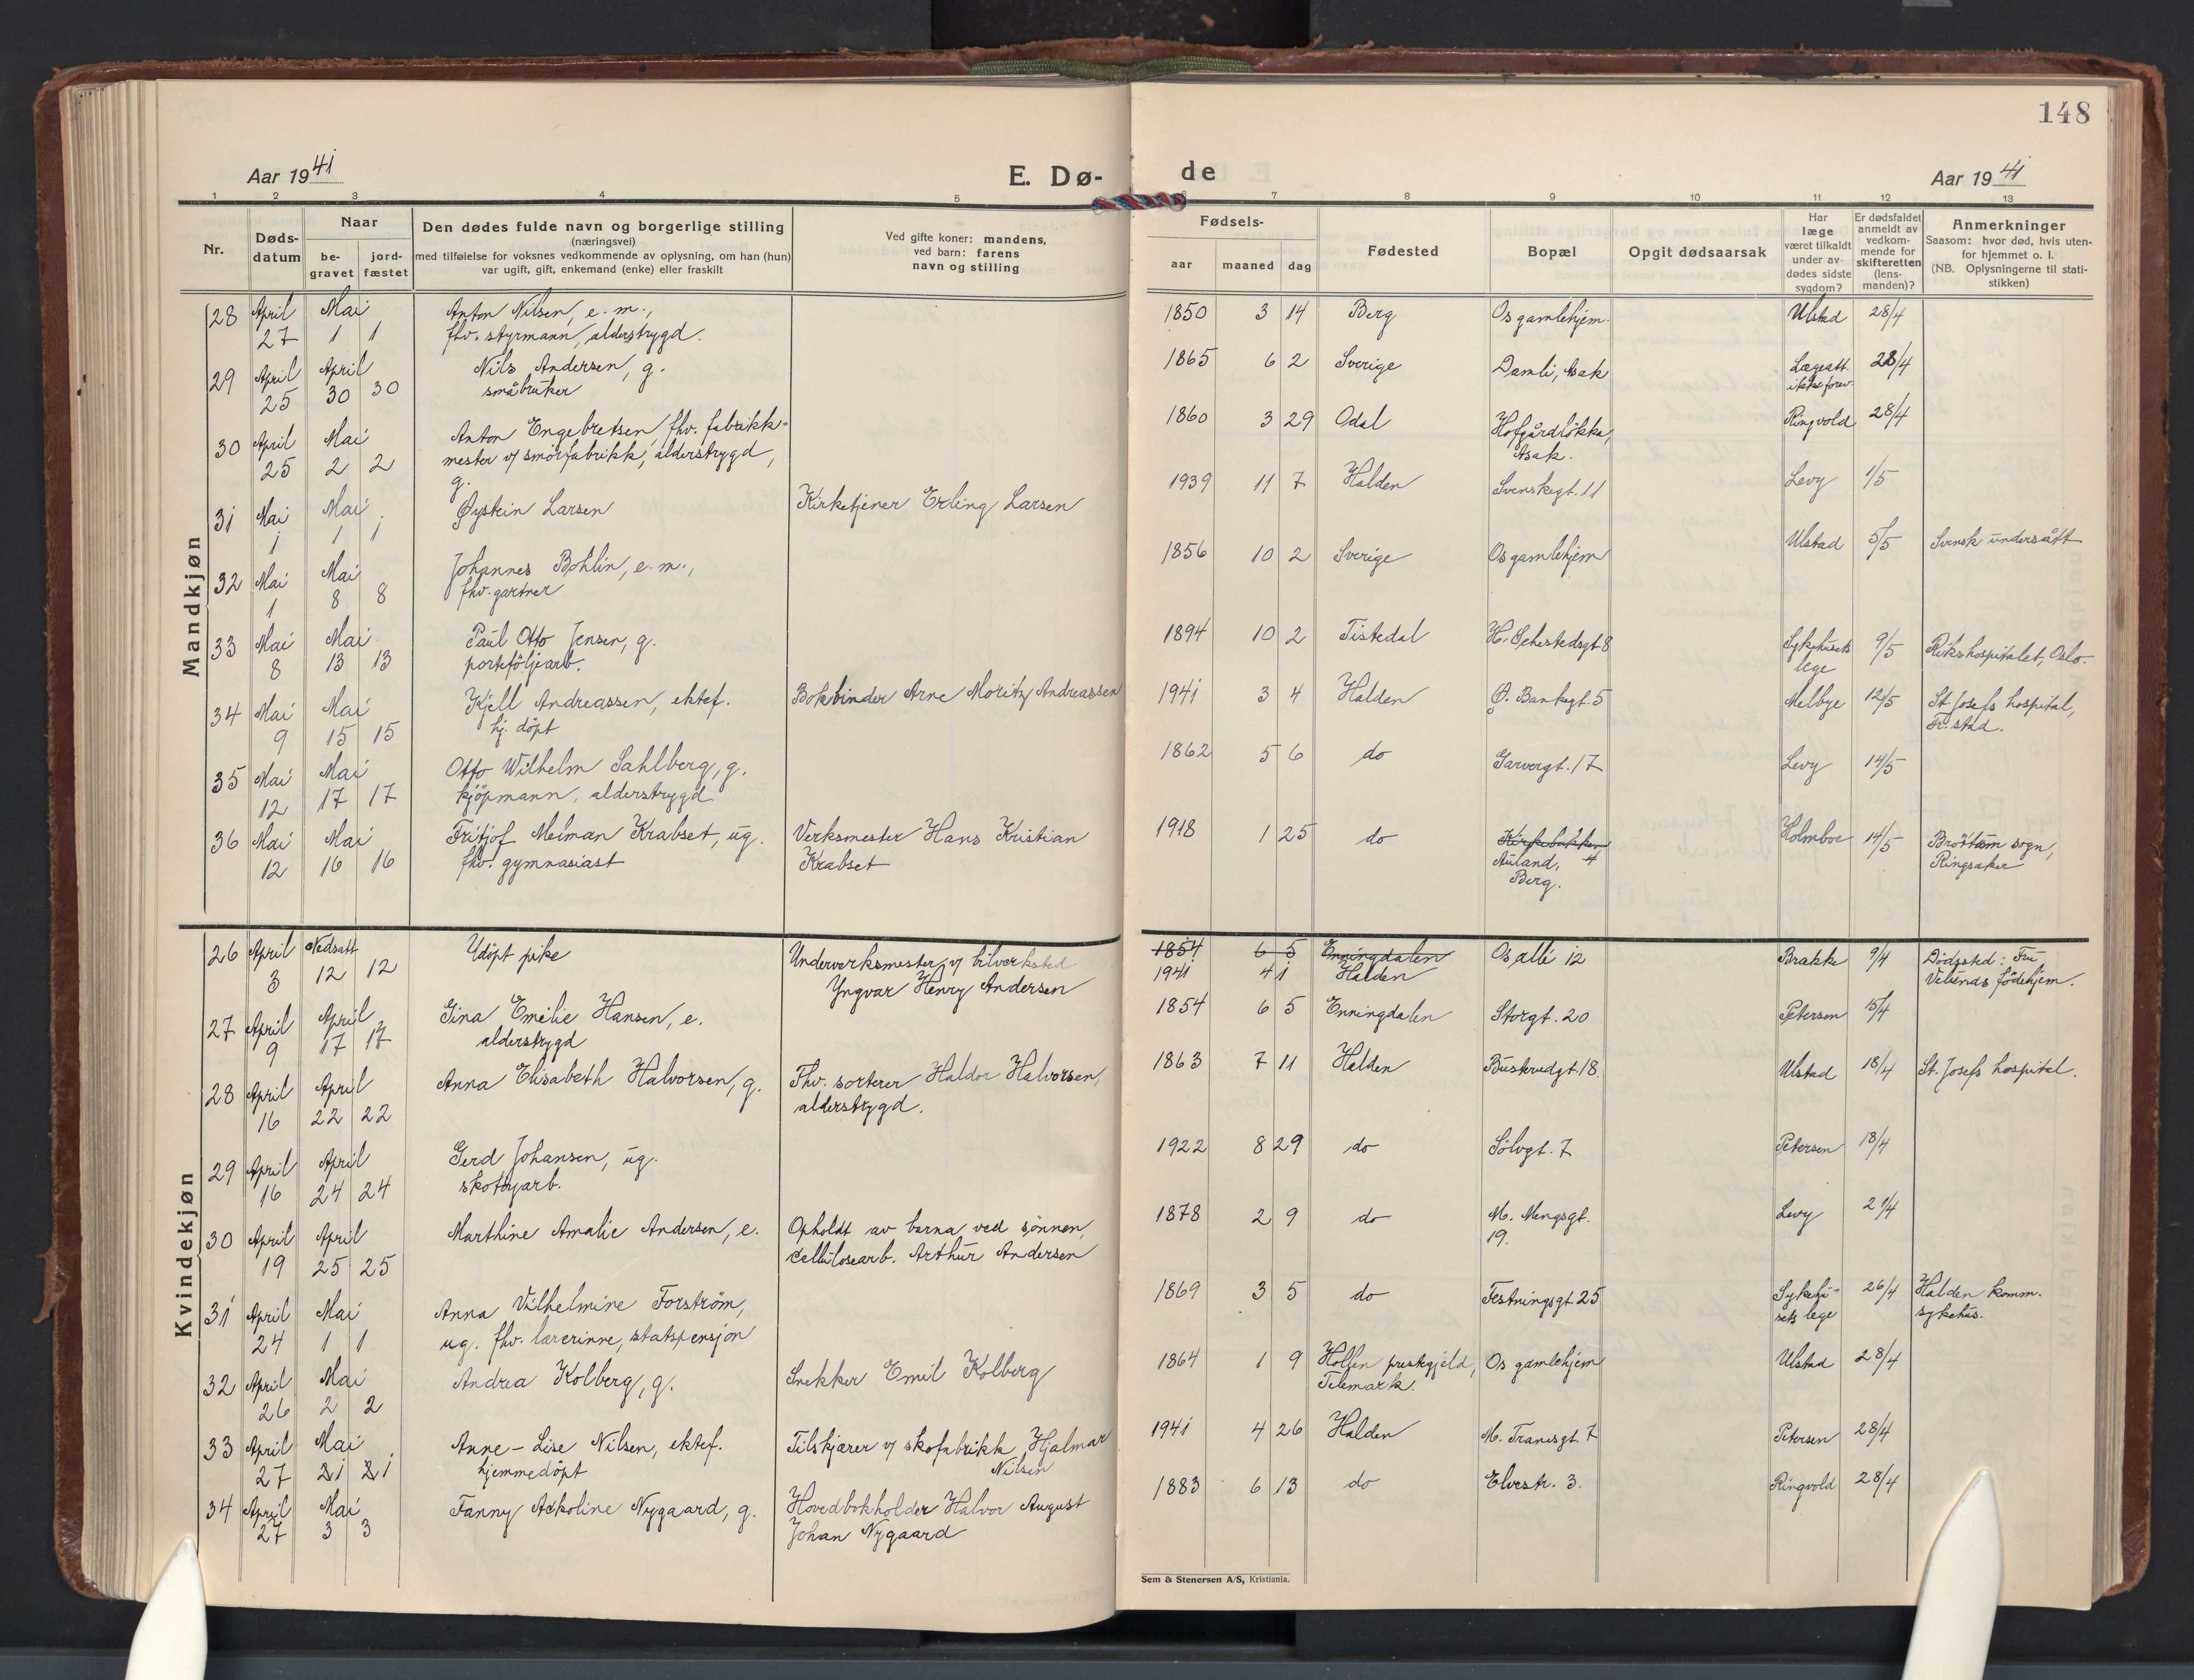 148
Aar 1941
E. Dø-
de
Aar 1941
1 2 3 4 5
6 7 8 9 10 11 12 13
Nr.
Døds-
datum
Naar
be-
gravet
jord-
fæstet
Den dødes fulde navn og borgerlige stilling
(næringsvei)
med tilføielse for voksnes vedkommende av oplysning, om han (hun)
var ugift, gift, enkemand (enke) eller fraskilt
Ved gifte koner: mandens,
ved barn: farens
navn og stilling
Fødsels-
aar maaned dag
Fødested
Bopæl
Opgit dødsaarsak
Har
læge
været tilkaldt
under av-
dødes sidste
sygdom?
Er dødsfaldet
anmeldt av
vedkom-
mende for
skifteretten
(lens-
manden)?
Anmerkninger
Saasom: hvor død, hvis uten-
for hjemmet o. l.
(NB. Oplysningerne til stati-
stikken)
Mandkjøn
28 April Mai Anton Nilsen, e. m., 1850 3 14 Berg Os gamlehjem. Ulstad 28/4
27 1 1 fhv. styrmann, alderstrygd.
29 April April Nils Andersen, g. 1865 6 2 Sverige Damli, Asak Lægeatt. 28/4
25 30 30 småbruker ikke forev.
30 April Mai Anton Engebretsen, fhv. fabrikk- 1860 3 29 Odal Hofgårdløkka, Ringvold 28/4
25 2 2 mester v/ smørfabrikk, alderstrygd, Asak.
g.
31 Mai Mai Øystein Larsen Kirketjener Erling Larsen 1939 11 7 Halden Svenskegt. 11 Levy 1/5
1 1 1
32 Mai Mai Johannes Bohlin, e. m., 1856 10 2 Sverige Os gamlehjem Ulstad 5/5 Svensk undersått
1 8 8 fhv. gartner
33 Mai Mai Paul Otto Jensen, g. 1894 10 2 Tistedal H. Sehestedsgt 8 Sykehusets 9/5 Rikshospitalet, Oslo.
8 13 13 porteføljearb. lege
34 Mai Mai Kjell Andreassen, ektef. Bokbinder Arne Moritz Andreassen 1941 3 4 Halden Ø. Bankegt. 5 Melbye 12/5 St. Josefs hospital,
9 15 15 hj. døpt Fr.stad.
35 Mai Mai Otto Wilhelm Sahlberg, g. 1862 5 6 do Garvergt. 17 Levy 14/5
12 17 17 kjøpmann, alderstrygd
36 Mai Mai Fritjof Melman Krabset, ug. Verksmester Hans Kristian 1918 1 25 do Kirkebakken Holmboe 14/5 Brøttum sogn,
12 16 16 fhv. gymnasiast Krabset Auland, 4 Ringsaker
Berg.
Kvindekjøn
26 April Nedsatt Udøpt pike Underverksmester v/ bilverksted 1854 6 5 Enningdalen Os allé 12 Brække 9/4 Dødssted: Fru
3 12 12 Yngvar Henry Andersen 1941 4 1 Halden fødehjem.
27 April April Gina Emilie Hansen, e. 1854 6 5 Enningdalen Storgt. 20 Petersen 15/4
9 17 17 alderstrygd
28 April April Anna Elisabeth Halvorsen, g. Fhv. sorterer Haldor Halvorsen, 1863 7 11 Halden Buskrudgt. 18. Ulstad 18/4 St. Josefs hospital.
16 22 22 alderstrygd.
29 April April Gerd Johansen, ug. 1922 8 29 do Sølvgt. 7 Petersen 18/4
16 24 24 skotøyarb.
30 April April Marthine Amalie Andersen, e. Opholdt av barna, ved sønnen, 1878 2 9 do M. Mengsgt. Levy 21/4
19 25 25 cellulosearb. Arthur Andersen 19.
31 April Mai Anna Vilhelmine Forstrøm, 1869 3 5 do Festningsgt. 25 Sykehu- 26/4 Halden komm.
24 1 1 ug. fhv. lærerinne, statspensjon sets lege sykehus.
32 April Mai Andrea Kolberg, g. Snekker Emil Kolberg 1864 1 9 Holsen prestegjeld, Os gamlehjem Ulstad 28/4
26 2 2 Telemark.
33 April Mai Anne-Lise Nilsen, ektef. Tilskjærer v/ skofabrikk Hjalmar 1941 4 26 Halden M. Tranesgt. 7 Petersen 28/4
27 21 21 hjemmedøpt Nilsen
34 April Mai Fanny Askoline Nygaard, g. Hovedbokholder Halvor August 1883 6 13 do Elvestr. 3. Ringvold 28/4
27 3 3 Johan Nygaard
Sem & Stenersen A/S, Kristiania.